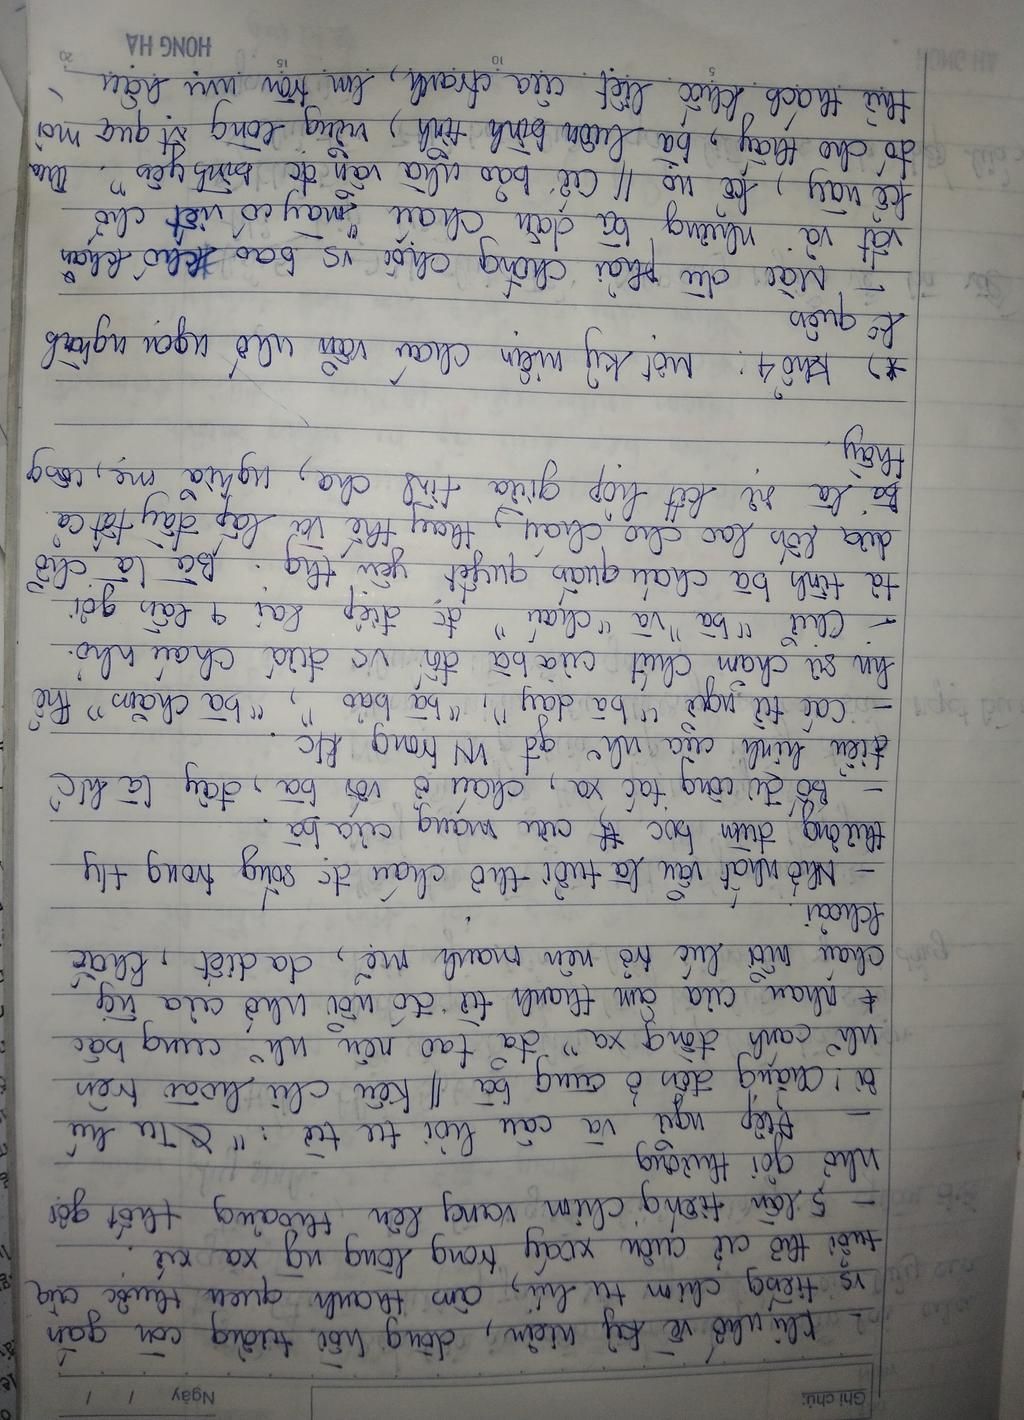 Ghi chú:
Ngày / /
- Khi nhớ về kỷ niệm, dòng hồi tưởng còn gắn
vs tiếng chim tu hú, âm thanh quen thuộc của
tuổi thơ cứ cuộn xoáy trong lòng ng xa xứ.
- 5 lần tiếng chim vang lên thoảng thốt gợi
nhớ gợi thương
- Điệp ngữ và câu hỏi tu từ: " Tu hú
ơi! Chẳng đến ở cùng bà // Kêu chi hoài trên
cánh đồng xa" đã tạo nên cung bậc
nhau của âm thanh từ đó nỗi nhớ của ng
cháu mỗi lúc trở nên mạnh mẽ, da diết, khắc
khoải.
- Nhớ nhất vẫn là tuổi thơ cháu đc sống trong ty
thương đùm bọc của bà.
- Bố đi công tác xa, cháu ở với bà, đây là h/c
điển hình của gđ VN trong k/c
- Các từ ngữ "bà dạy", "bà bảo", "bà chăm" thể
hn sự chăm chút của bà đối vs đứa cháu nhỏ.
- Chữ "bà" và "cháu" đc điệp lại 4 lần gợi
tả tình bà cháu quấn quyết yêu thg. Bà là chỗ
dựa lớn lao cho cháu, thay thế và lấp đầy tất cả.
Bà là sự kết hợp giữa tình cha, nghĩa mẹ, công
thầy.
*) Khổ 4: Một kỷ niệm cháu vẫn nhớ ngọn nghành
k quên
- Mặc dù phải chống chọi vs bao khó khăn
vất vả nhưng bà dặn cháu "mày có viết chớ
kể này, kể nọ // Cứ bảo nhà vẫn đc bình yên".
đó cho thấy, bà luôn bình tĩnh, vững lòng qua mọi
thử thách khốc liệt của ctranh,
5 10 15 20
HONG HA